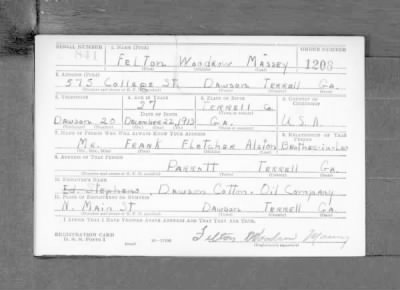 SERIAL NUMBER 1. NAME (Print) ORDER NUMBER
841 FELTON Woodrow MASSEY 1208
2. ADDRESS (Print)
575 College St. Dawson TERRELL GA.
3. TELEPHONE 4. AGE IN YEARS 5. PLACE OF BIRTH 6. COUNTRY OF CITIZENSHIP
27 TERRELL Co.
Dawson 20 December 22, 1912 GA. U.S.A.
7. NAME OF PERSON WHO WILL ALWAYS KNOW YOUR ADDRESS 8. RELATIONSHIP OF THAT PERSON
MR. FRANK Fletcher Alston Brother-in-law
9. ADDRESS OF THAT PERSON
PARROTT TERRELL GA.
10. EMPLOYER'S NAME
Ed. Stephens. Dawson Cotton Oil Company
11. PLACE OF EMPLOYMENT OR BUSINESS
N. Main St. Dawson TERRELL GA.
I AFFIRM THAT I HAVE VERIFIED ABOVE ANSWERS AND THAT THEY ARE TRUE.
REGISTRATION CARD
D. S. S. FORM 1 Felton Woodrow Massey